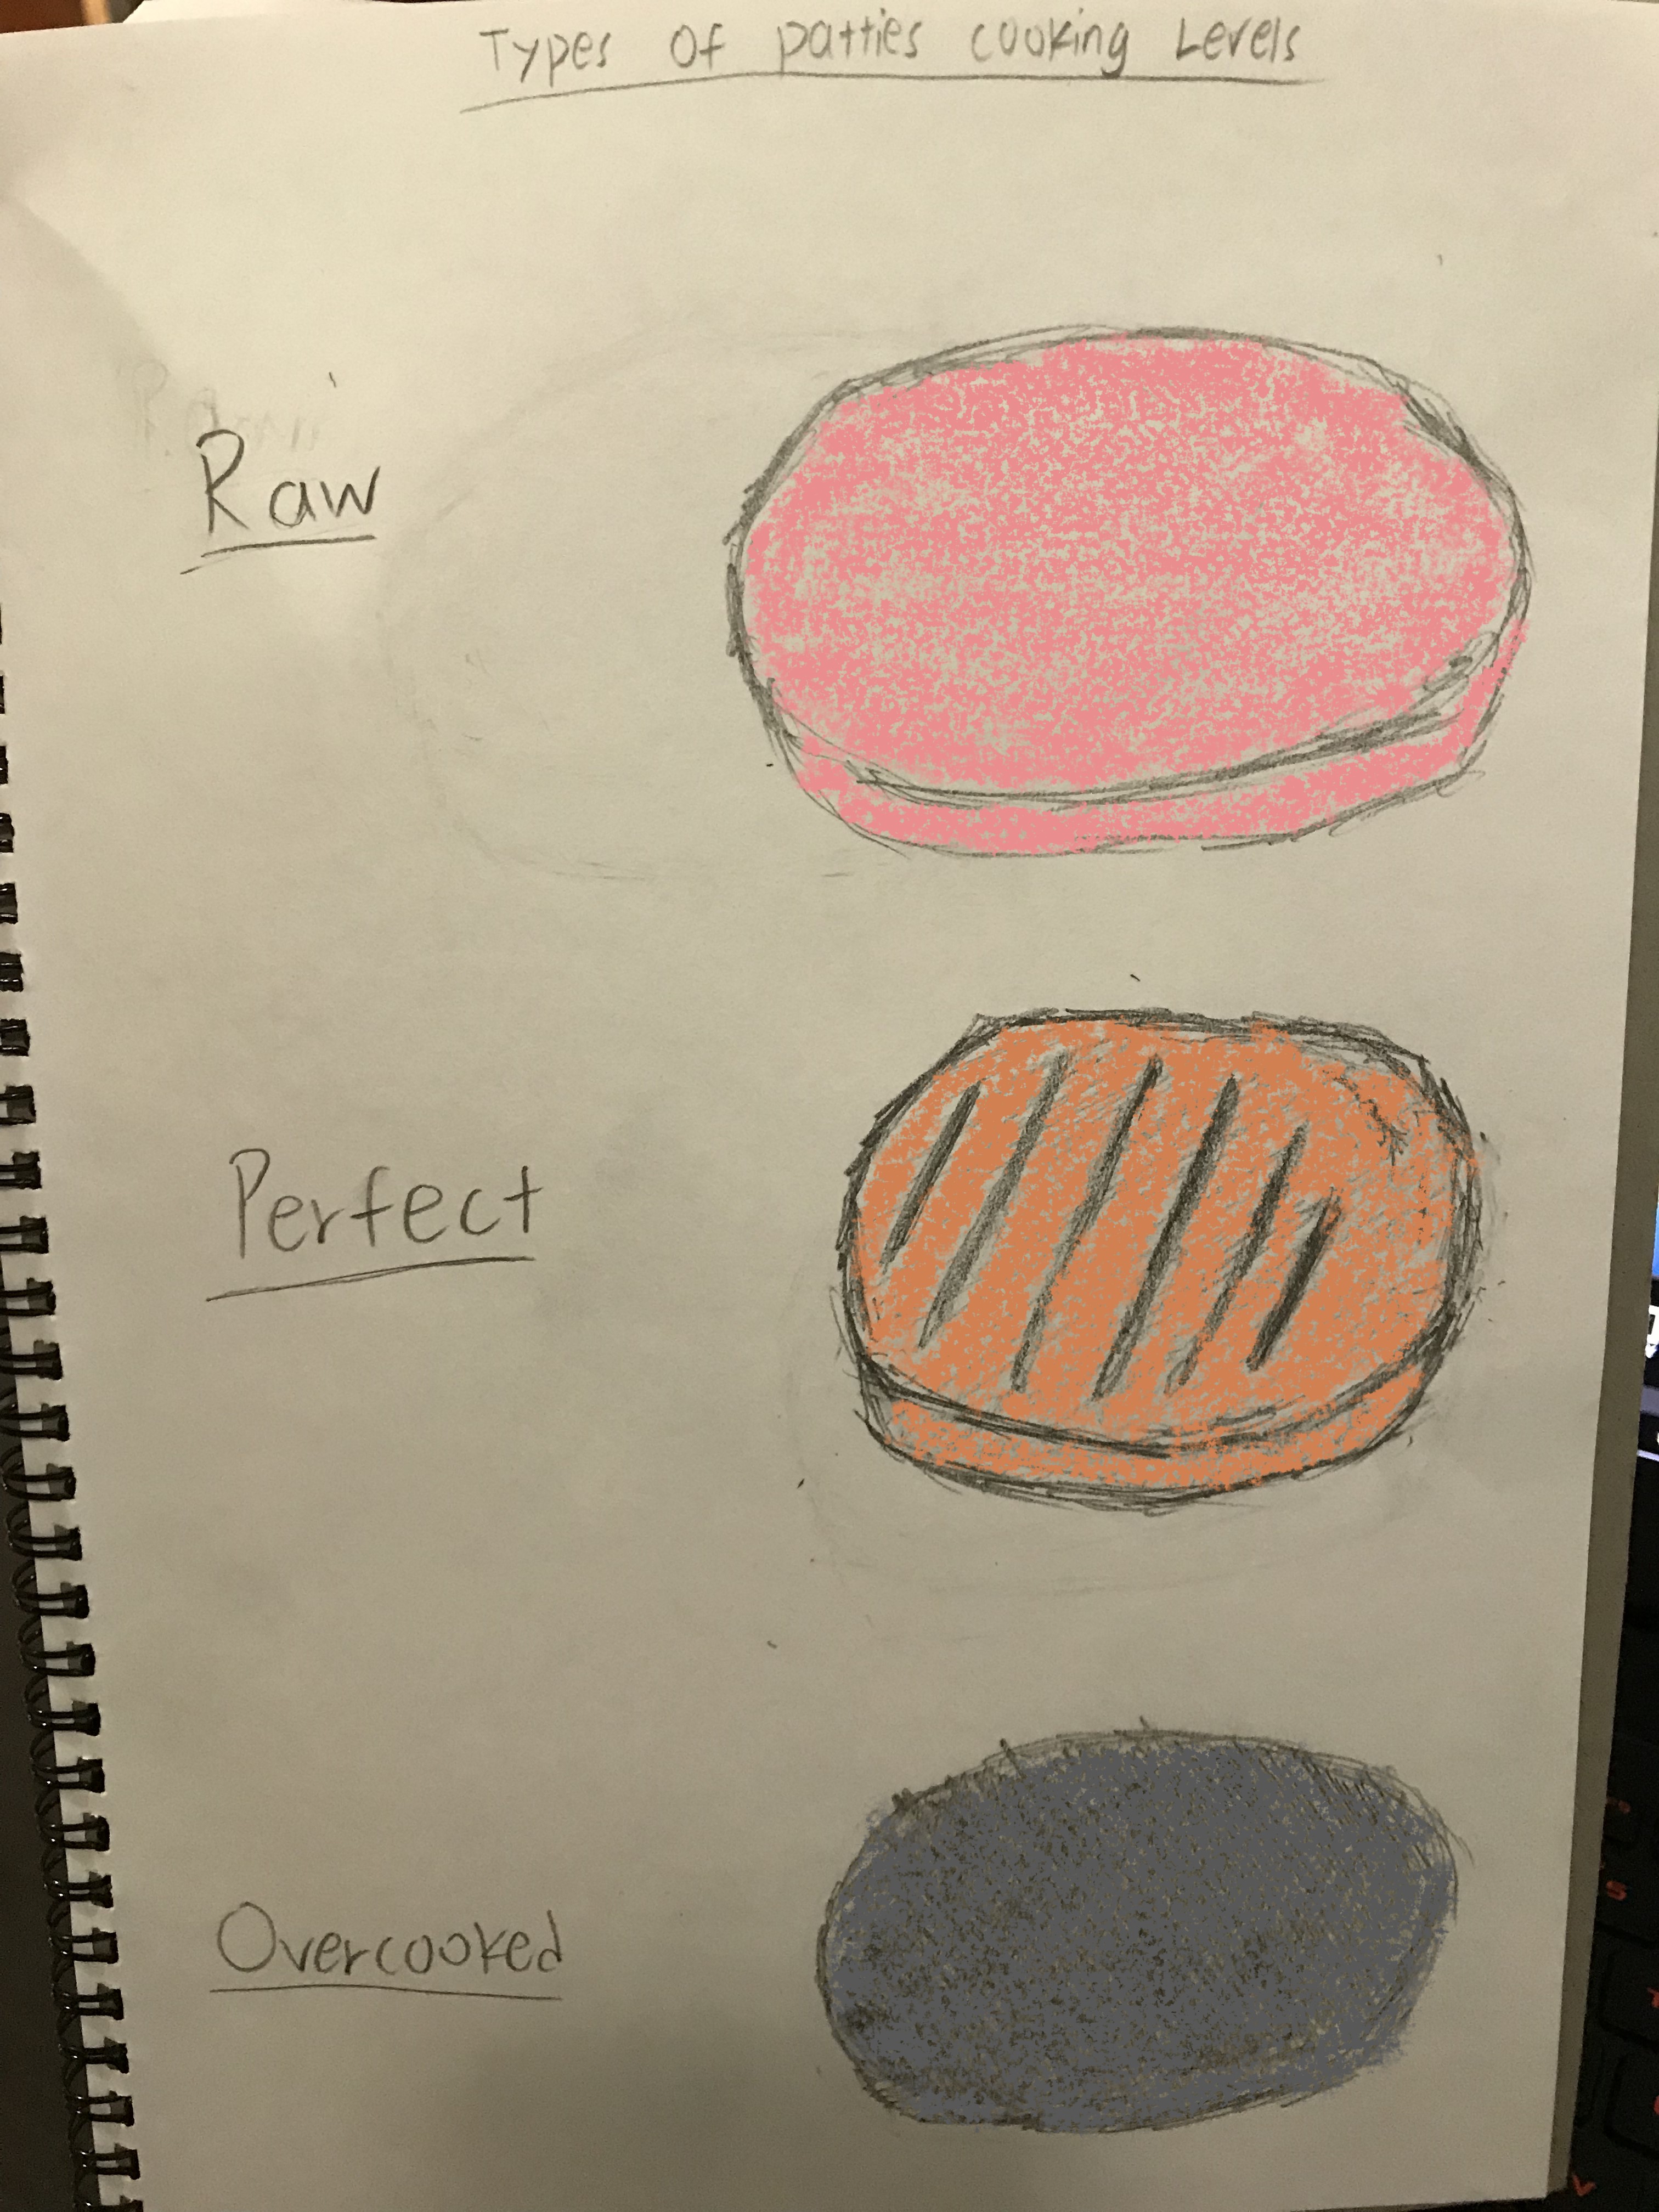 Types Of patties cooking Levels
Raw
Perfect
Overcooked